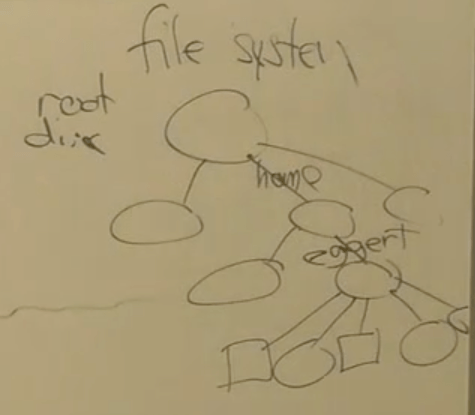 file system
root
dir
home
eggert